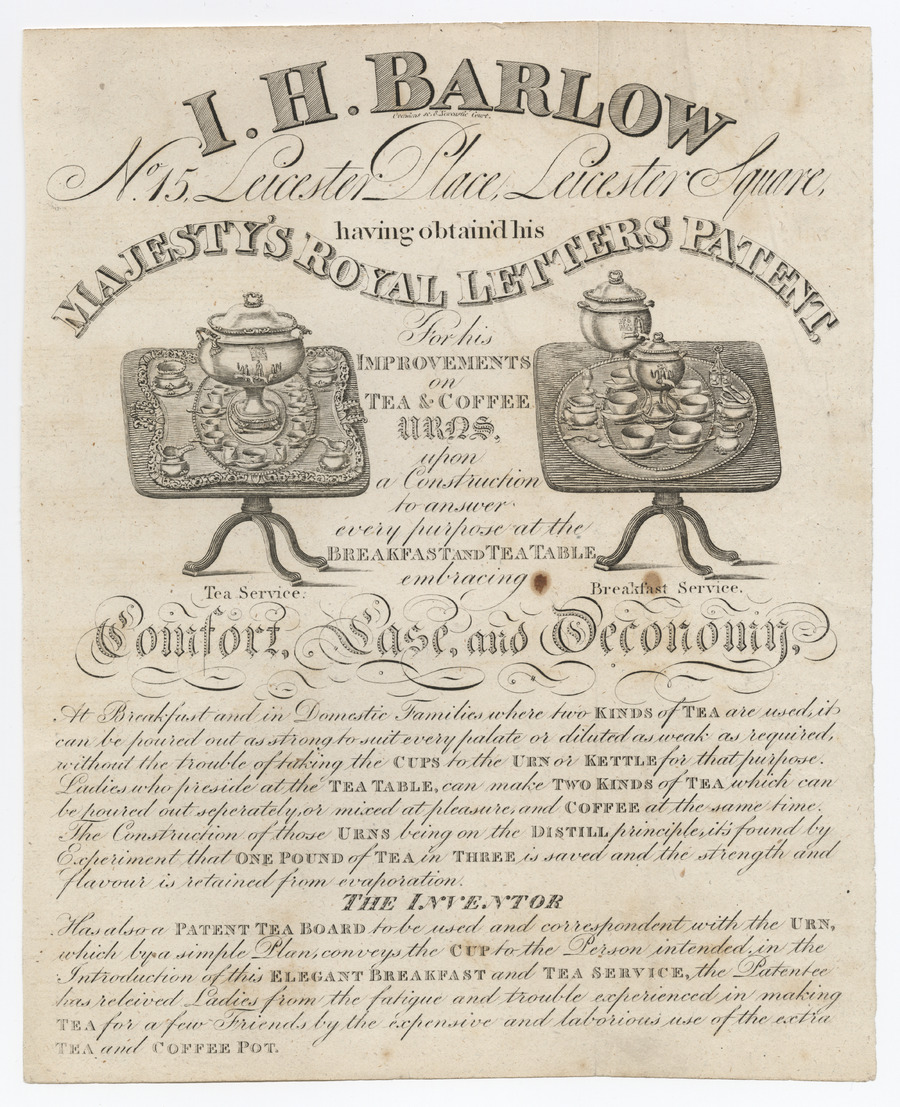 I. H. BARLOW
No. 15, Leicester Place, Leicester Square,
having obtain'd his
MAJESTY'S ROYAL LETTERS PATENT,
For his
IMPROVEMENTS
on
TEA & COFFEE
URNS,
upon
a Construction
to answer
every purpose at the
BREAKFAST AND TEA TABLE
embracing
Tea Service.
Breakfast Service.
Comfort, Ease, and Oeconomy,
At Breakfast and in Domestic Families where two KINDS of TEA are used, it
can be poured out as strong to suit every palate or diluted as weak as required,
without the trouble of taking the CUPS to the URN or KETTLE for that purpose.
Ladies who preside at the TEA TABLE, can make TWO KINDS of TEA which can
be poured out seperately, or mixed at pleasure, and COFFEE at the same time.
The Construction of those URNS being on the DISTILL principle, it's found by
Experiment that ONE POUND of TEA in THREE is saved and the strength and
flavour is retained from evaporation.
THE INVENTOR
Has also a PATENT TEA BOARD to be used and correspondent with the URN,
which by a simple Plan, conveys the CUP to the Person intended, in the
Introduction of this ELEGANT BREAKFAST and TEA SERVICE, the Patentee
has releived Ladies from the fatigue and trouble experienced in making
TEA for a few Friends by the expensive and laborious use of the extra
TEA and COFFEE POT.